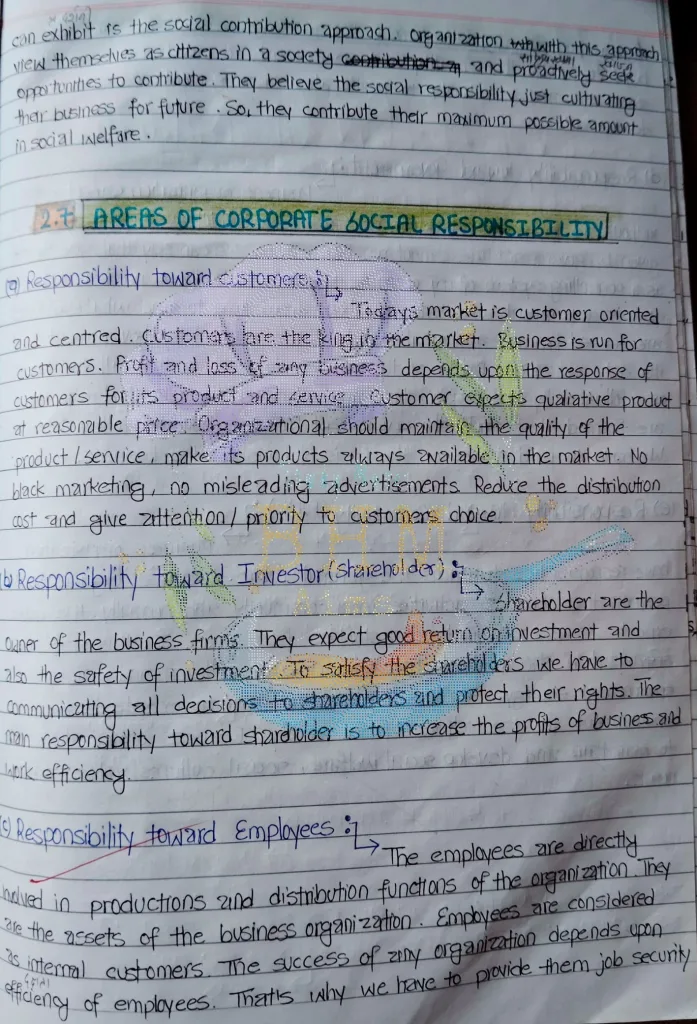 can exhibit is the social contribution approach. Organization with with this approach
view themselves as citizens in a society contribution and proactively seek
opportunities to contribute. They believe the social responsibility just cultivating
their business for future. So, they contribute their maximum possible amount
in social welfare.
2.7 AREAS OF CORPORATE SOCIAL RESPONSIBILITY
(a) Responsibility toward customers:
Todays market is customer oriented
and centred. Customers are the king in the market. Business is run for
customers. Profit and loss of any business depends upon the response of
customers for its product and service. Customer expects qualiative product
at reasonable price. Organizational should maintain the quality of the
product/service, make its products always available in the market. No
black marketing, no misleading advertisements. Reduce the distribution
cost and give attention/priority to customers choice.
BHM
Aims
b) Responsibility toward Investor (shareholder):
Shareholder are the
owner of the business firms. They expect good return on investment and
also the safety of investment. To satisfy the shareholders we have to
communicating all decisions to shareholders and protect their rights. The
main responsibility toward shareholder is to increase the profits of business and
work efficiency.
(c) Responsibility toward Employees:
The employees are directly
involved in productions and distribution functions of the organization. They
are the assets of the business organization. Employees are considered
as internal customers. The success of any organization depends upon
efficiency of employees. That's why we have to provide them job security